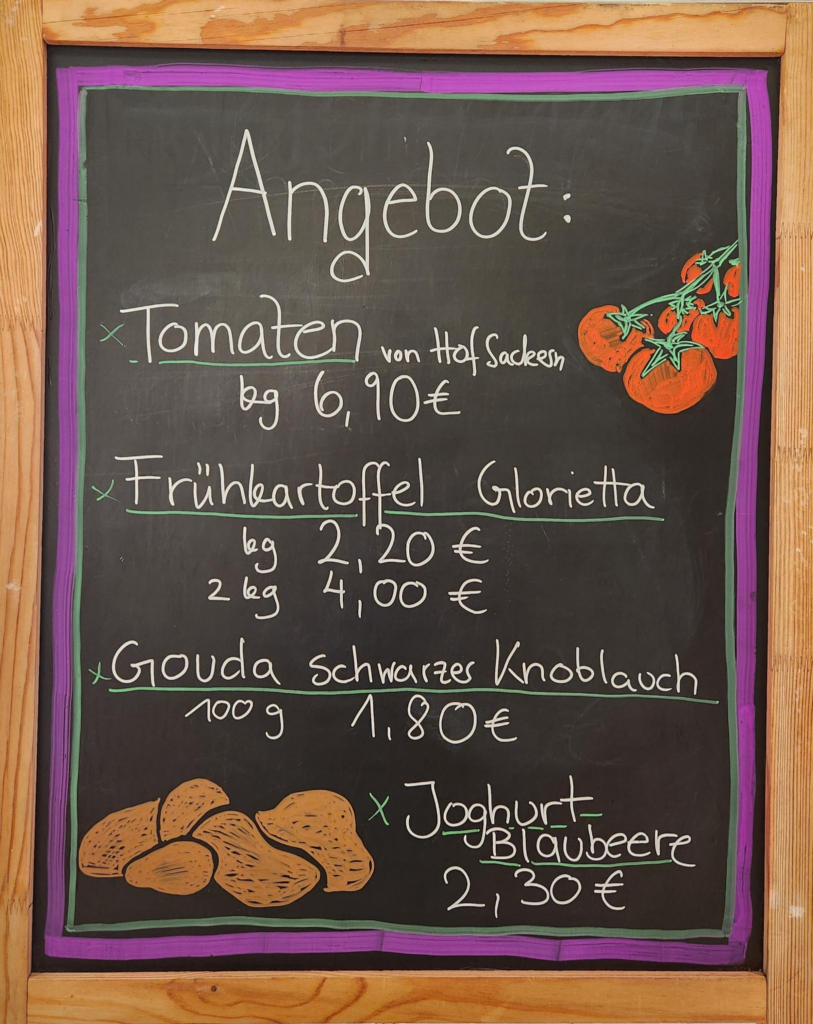 Angebot:
x Tomaten von Hof Sackern
kg 6,90€
x Frühkartoffel Glorietta
kg 2,20 €
2 kg 4,00 €
x Gouda schwarzes Knoblauch
100g 1,80€
x Joghurt-
Blaubeere
2,30€